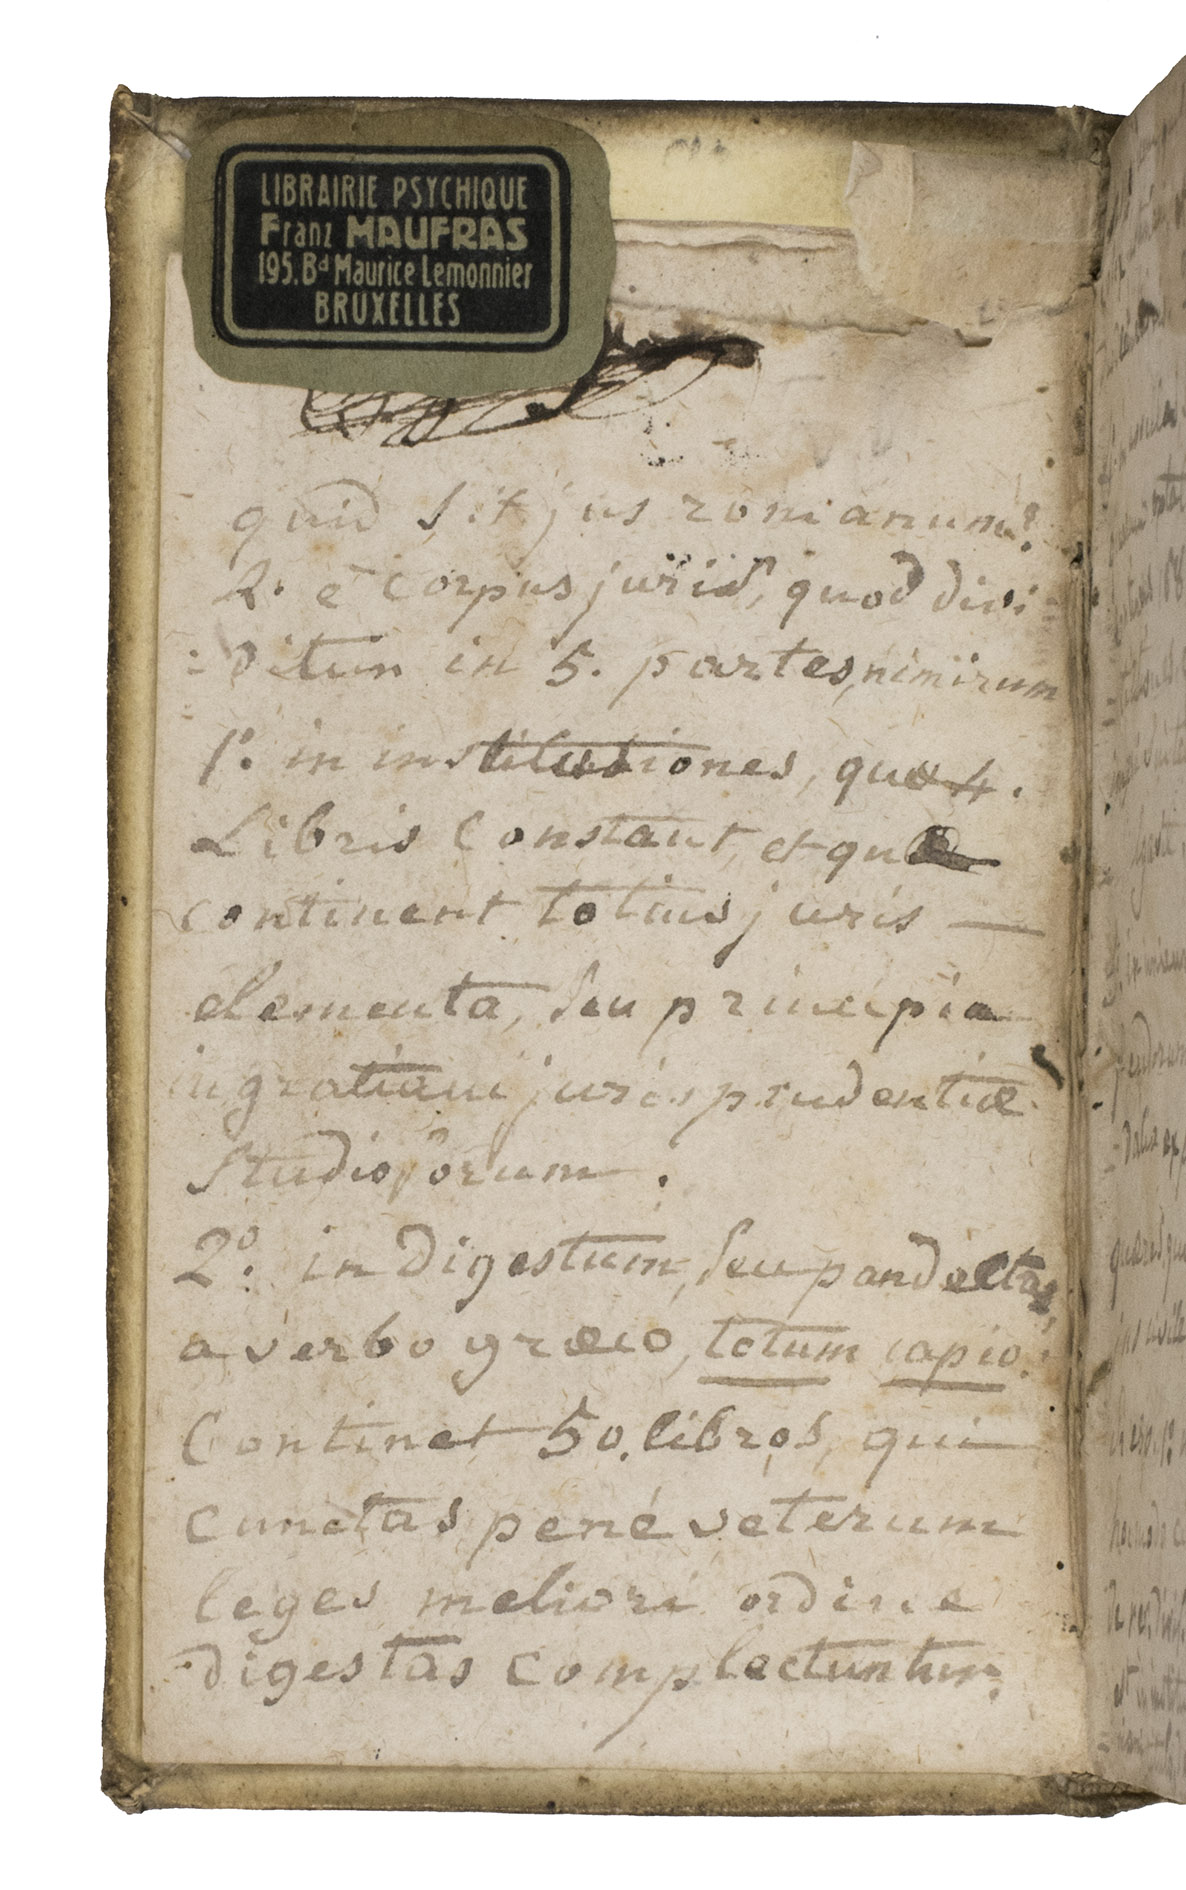 LIBRAIRIE PSYCHIQUE
Franz MAUFRAS
195. Bd Maurice Lemonnier
BRUXELLES
quid sit jus romanum?
R. e corpus juris, quod divi-
-ditur in 5. partes, nimirum
1º. in institutiones, quæ 4.
Libris Constant, et quæ
continent totius juris —
elementa, seu principia
in gratiam jurisprudentiæ
Studiosorum.
2º. in Digestum, seu pandectas,
a verbo græco, totum capio.
Continet 50. libros, qui
cunctas penè veterum
leges meliori ordine
digestas complectuntur.